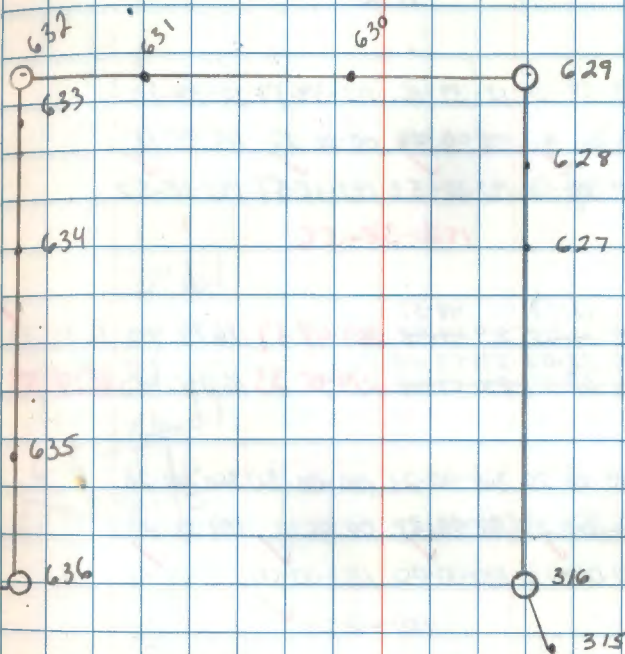 632
631
630
629
633
628
634
627
635
636
316
315